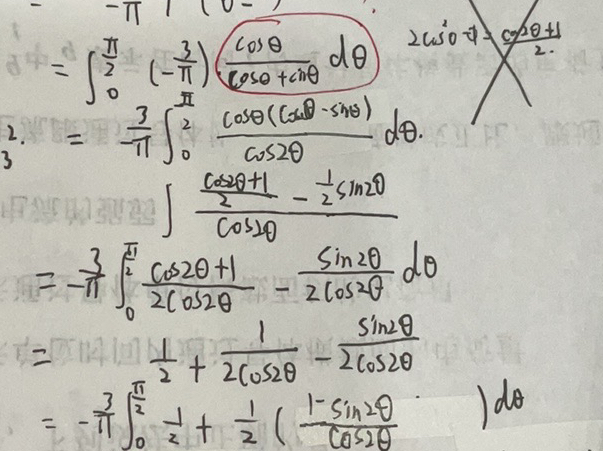 -π
= ∫₀^(π/2) (-3/π) · cosθ/(cosθ+sinθ) dθ
= -3/π ∫₀^(π/2) cosθ(cosθ-sinθ)/cos2θ dθ.
∫ ((cos2θ+1)/2 - 1/2 sin2θ)/cos2θ
= -3/π ∫₀^(π/2) (cos2θ+1)/(2cos2θ) - sin2θ/(2cos2θ) dθ
= 1/2 + 1/(2cos2θ) - sin2θ/(2cos2θ)
= -3/π ∫₀^(π/2) 1/2 + 1/2 ( (1-sin2θ)/cos2θ ) dθ